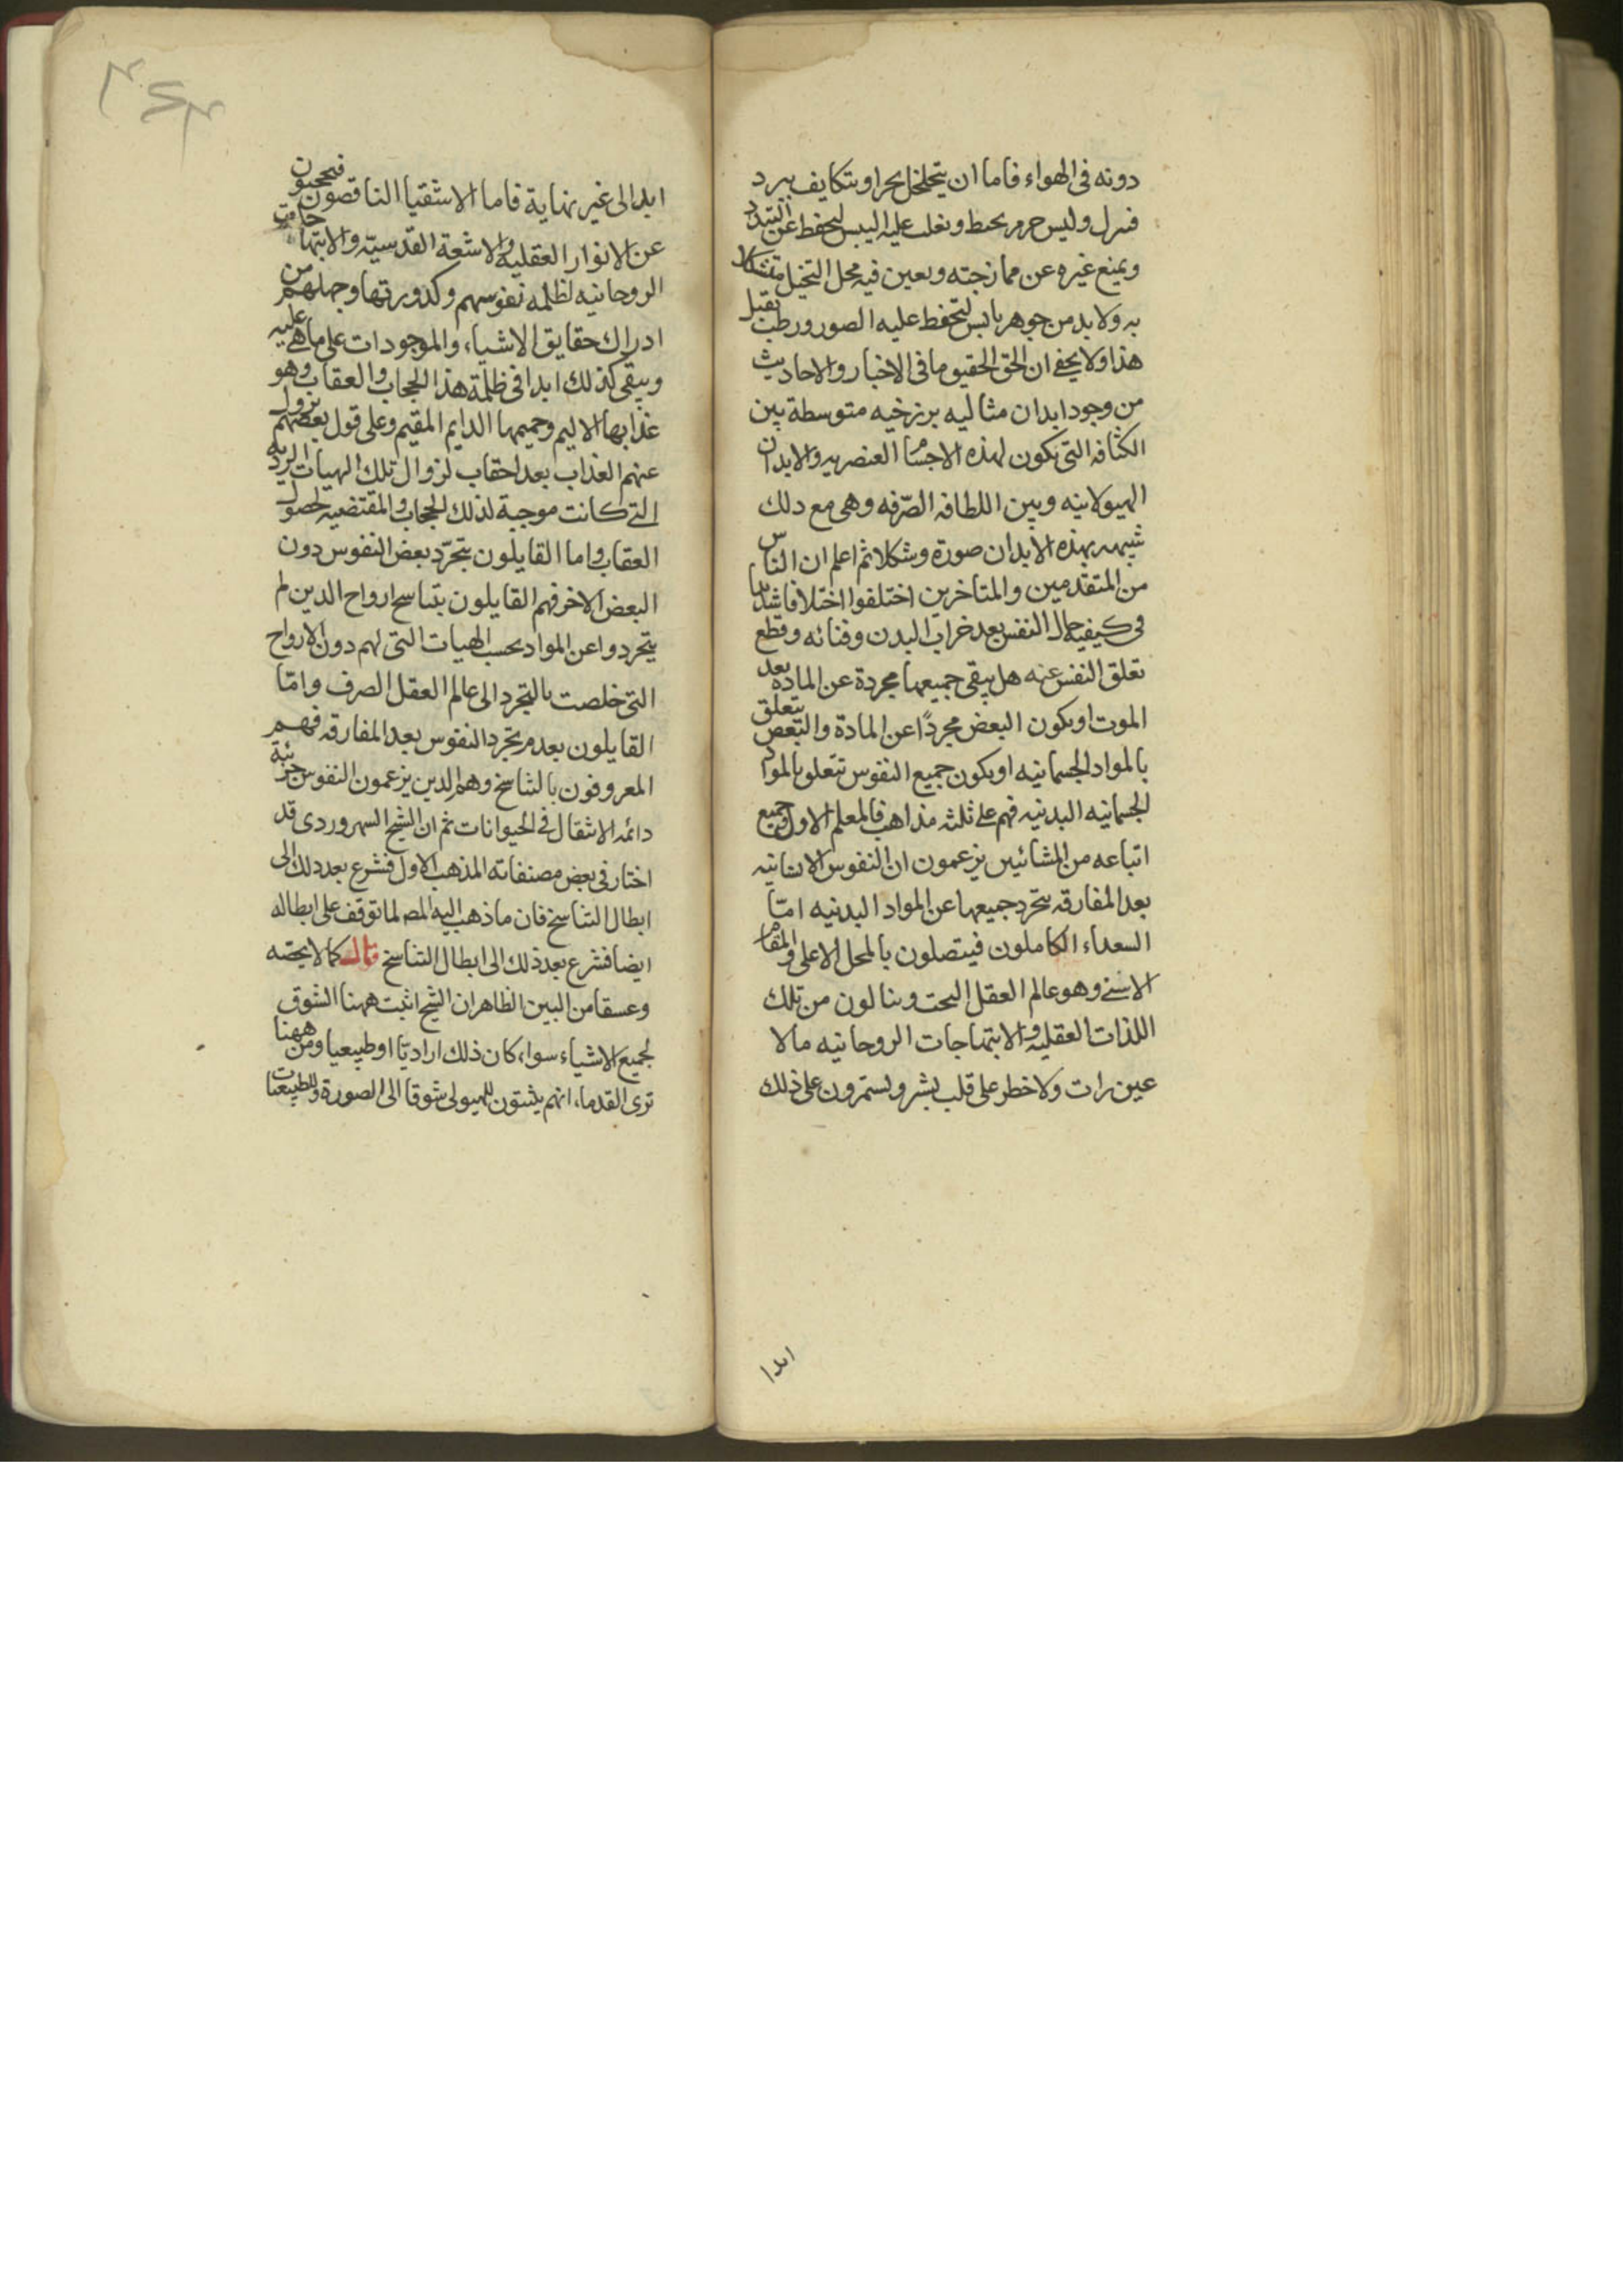 دونه فى الهواء فاما ان يتخلخل بحر او يتكاثف ببرد
فينزل وليس جرم محيط ويغلب عليه اليبس ليحفظ عن التبدد
ويمنع غيره عن ممازجته ويعين فيه محل التخيل متشكلا
به ولا بد من جوهر يابس لتحفظ عليه الصور ورطب يقبل
هذا ولا يخفى ان الحق الحقيق ما فى الاخبار والاحاديث
من وجود ابدان مثاليه برزخيه متوسطة بين
الكثافه التى تكون لهذه الاجسام العنصريه والابدان
الهيولانيه وبين اللطافه الصّرفه وهى مع ذلك
شبيهه بهذه الابدان صورة وشكلا ثم اعلم ان الناس
من المتقدمين والمتاخرين اختلفوا اختلافا شديدا
فى كيفيه حال النفس بعد خراب البدن وفنائه وقطع
تعلق النفس عنه هل يبقى جميعها مجردة عن الماده بعد
الموت او يكون البعض مجردًا عن المادة والبعض يتعلق
بالمواد الجسمانيه او يكون جميع النفوس تتعلق بالمواد
الجسمانيه البدنيه فهم على ثلثه مذاهب فالمعلم الاول وجميع
اتباعه من المشائين يزعمون ان النفوس الانسانيه
بعد المفارقه يتجرد جميعها عن المواد البدنيه امّا
السعداء الكاملون فيتصلون بالمحل الاعلى والمقام
الاسنى وهو عالم العقل البحت وينالون من تلك
اللذات العقليه والابتهاجات الروحانيه ما لا
عين رات ولا خطر على قلب بشر ويستمرون على ذلك
ابدا
ابدا الى غير نهاية فاما الاشقيا الناقصون فيحجبون
عن الانوار العقليه والاشعة القدسيّه والابتهاجات
الروحانيه لظلمه نفوسهم وكدورتها وجهلهم من
ادراك حقايق الاشياء والموجودات على ما هى عليه
ويبقى كذلك ابدا فى ظلمة هذا الحجاب والعقاب وهو
عذابها الاليم وجحيمها الدايم المقيم وعلى قول بعضهم يزول
عنهم العذاب بعد احقاب لزوال تلك الهيات الرديه
التى كانت موجبة لذلك الحجاب والمقتضيه لحصول
العقاب واما القايلون بتجرّد بعض النفوس دون
البعض الاخر فهم القايلون بتناسخ ارواح الذين لم
يتجردوا عن المواد بحسب الهيات التى لهم دون الارواح
التى خلصت بالتجرد الى عالم العقل الصرف وامّا
القايلون بعدم تجرد النفوس بعد المفارقه فهم
المعروفون بالتناسخ وهم الذين يزعمون النفوس جزئية
دائمه الانتقال فى الحيوانات ثم ان الشيخ السهروردى قد
اختار فى بعض مصنفاته المذهب الاول فشرع بعد ذلك الى
ابطال التناسخ فان ما ذهب اليه المص لما توقف على ابطاله
ايضا فشرع بعد ذلك الى ابطال التناسخ قال كمالا يخصّه
وعشقا من البين الظاهر ان الشيخ اثبت ههنا الشوق
لجميع الاشياء سواء كان ذلك اراديّا او طبيعيا ومن ههنا
ترى القدماء انهم يثبتون للهيولى شوقا الى الصورة وللطبيعيات